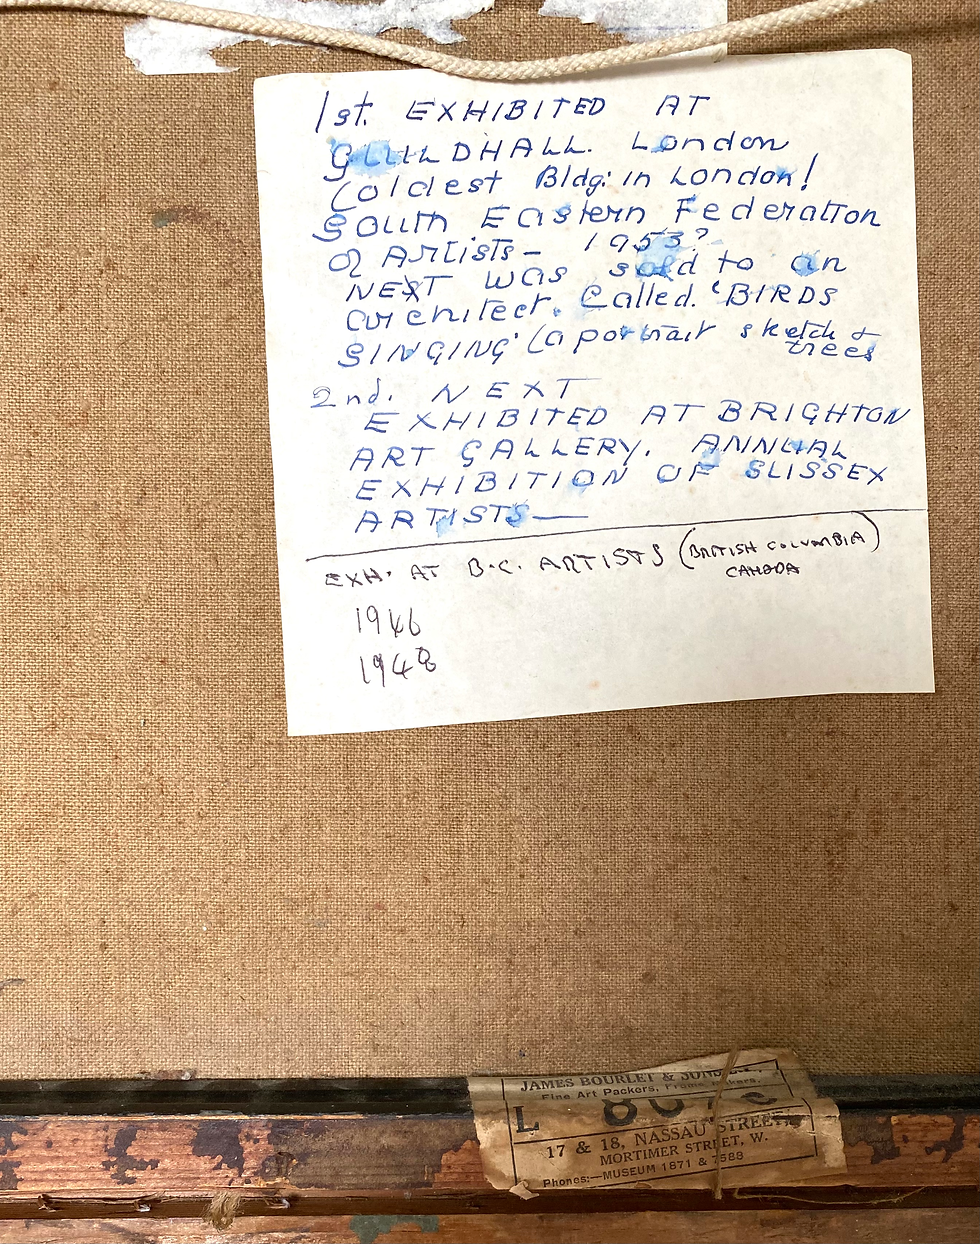 1st. EXHIBITED AT
GUILDHALL. London
(oldest Bldg: in London!
South Eastern Federation
of Artists — 1953?
NEXT was sold to an
architect. Called. 'BIRDS
SINGING' (a portrait sketch &
trees
2nd. NEXT
EXHIBITED AT BRIGHTON
ART GALLERY. ANNUAL
EXHIBITION OF SUSSEX
ARTISTS —
EXH. AT B.C. ARTISTS (BRITISH COLUMBIA)
CANADA
1946
1948
JAMES BOURLET & SONS,
Fine Art Packers, Frame Makers.
L
17 & 18, NASSAU STREET,
MORTIMER STREET, W.
Phones:—MUSEUM 1871 & 7588